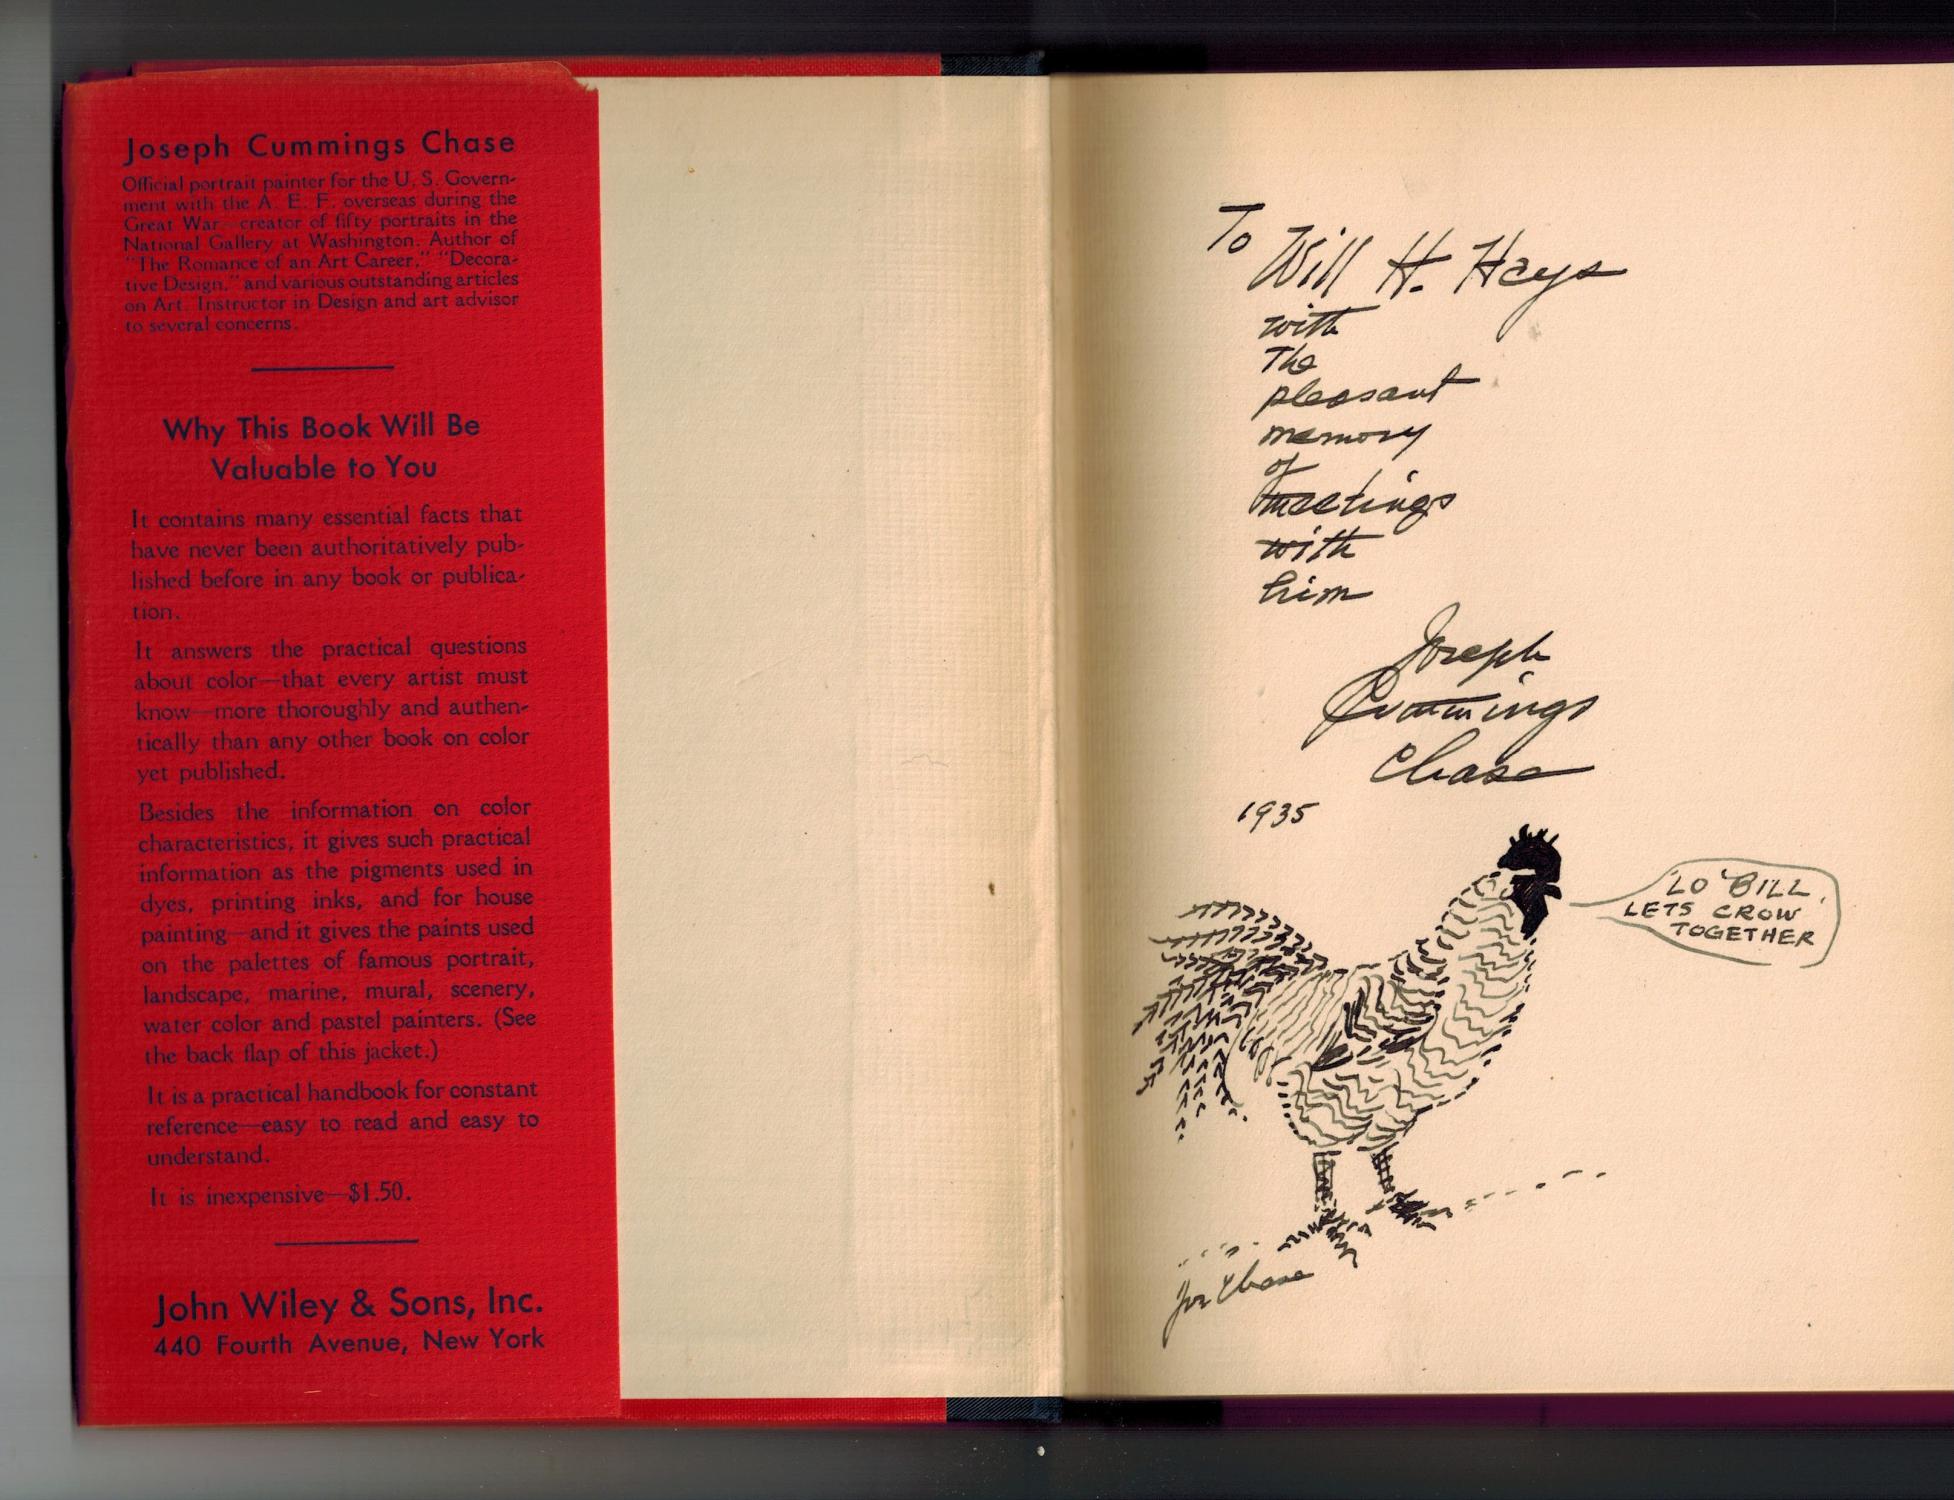 Joseph Cummings Chase
Official portrait painter for the U. S. Govern-
ment with the A. E. F. overseas during the
Great War—creator of fifty portraits in the
National Gallery at Washington. Author of
"The Romance of an Art Career," "Decora-
tive Design," and various outstanding articles
on Art. Instructor in Design and art advisor
to several concerns.
Why This Book Will Be
Valuable to You
It contains many essential facts that
have never been authoritatively pub-
lished before in any book or publica-
tion.
It answers the practical questions
about color—that every artist must
know—more thoroughly and authen-
tically than any other book on color
yet published.
Besides the information on color
characteristics, it gives such practical
information as the pigments used in
dyes, printing inks, and for house
painting—and it gives the paints used
on the palettes of famous portrait,
landscape, marine, mural, scenery,
water color and pastel painters. (See
the back flap of this jacket.)
It is a practical handbook for constant
reference—easy to read and easy to
understand.
It is inexpensive—$1.50.
John Wiley & Sons, Inc.
440 Fourth Avenue, New York
To
Will H. Hays
with
The
pleasant
memory
of
meetings
with
him
Joseph
Cummings
Chase
1935
'LO BILL,
LETS CROW
TOGETHER
Joe Chase